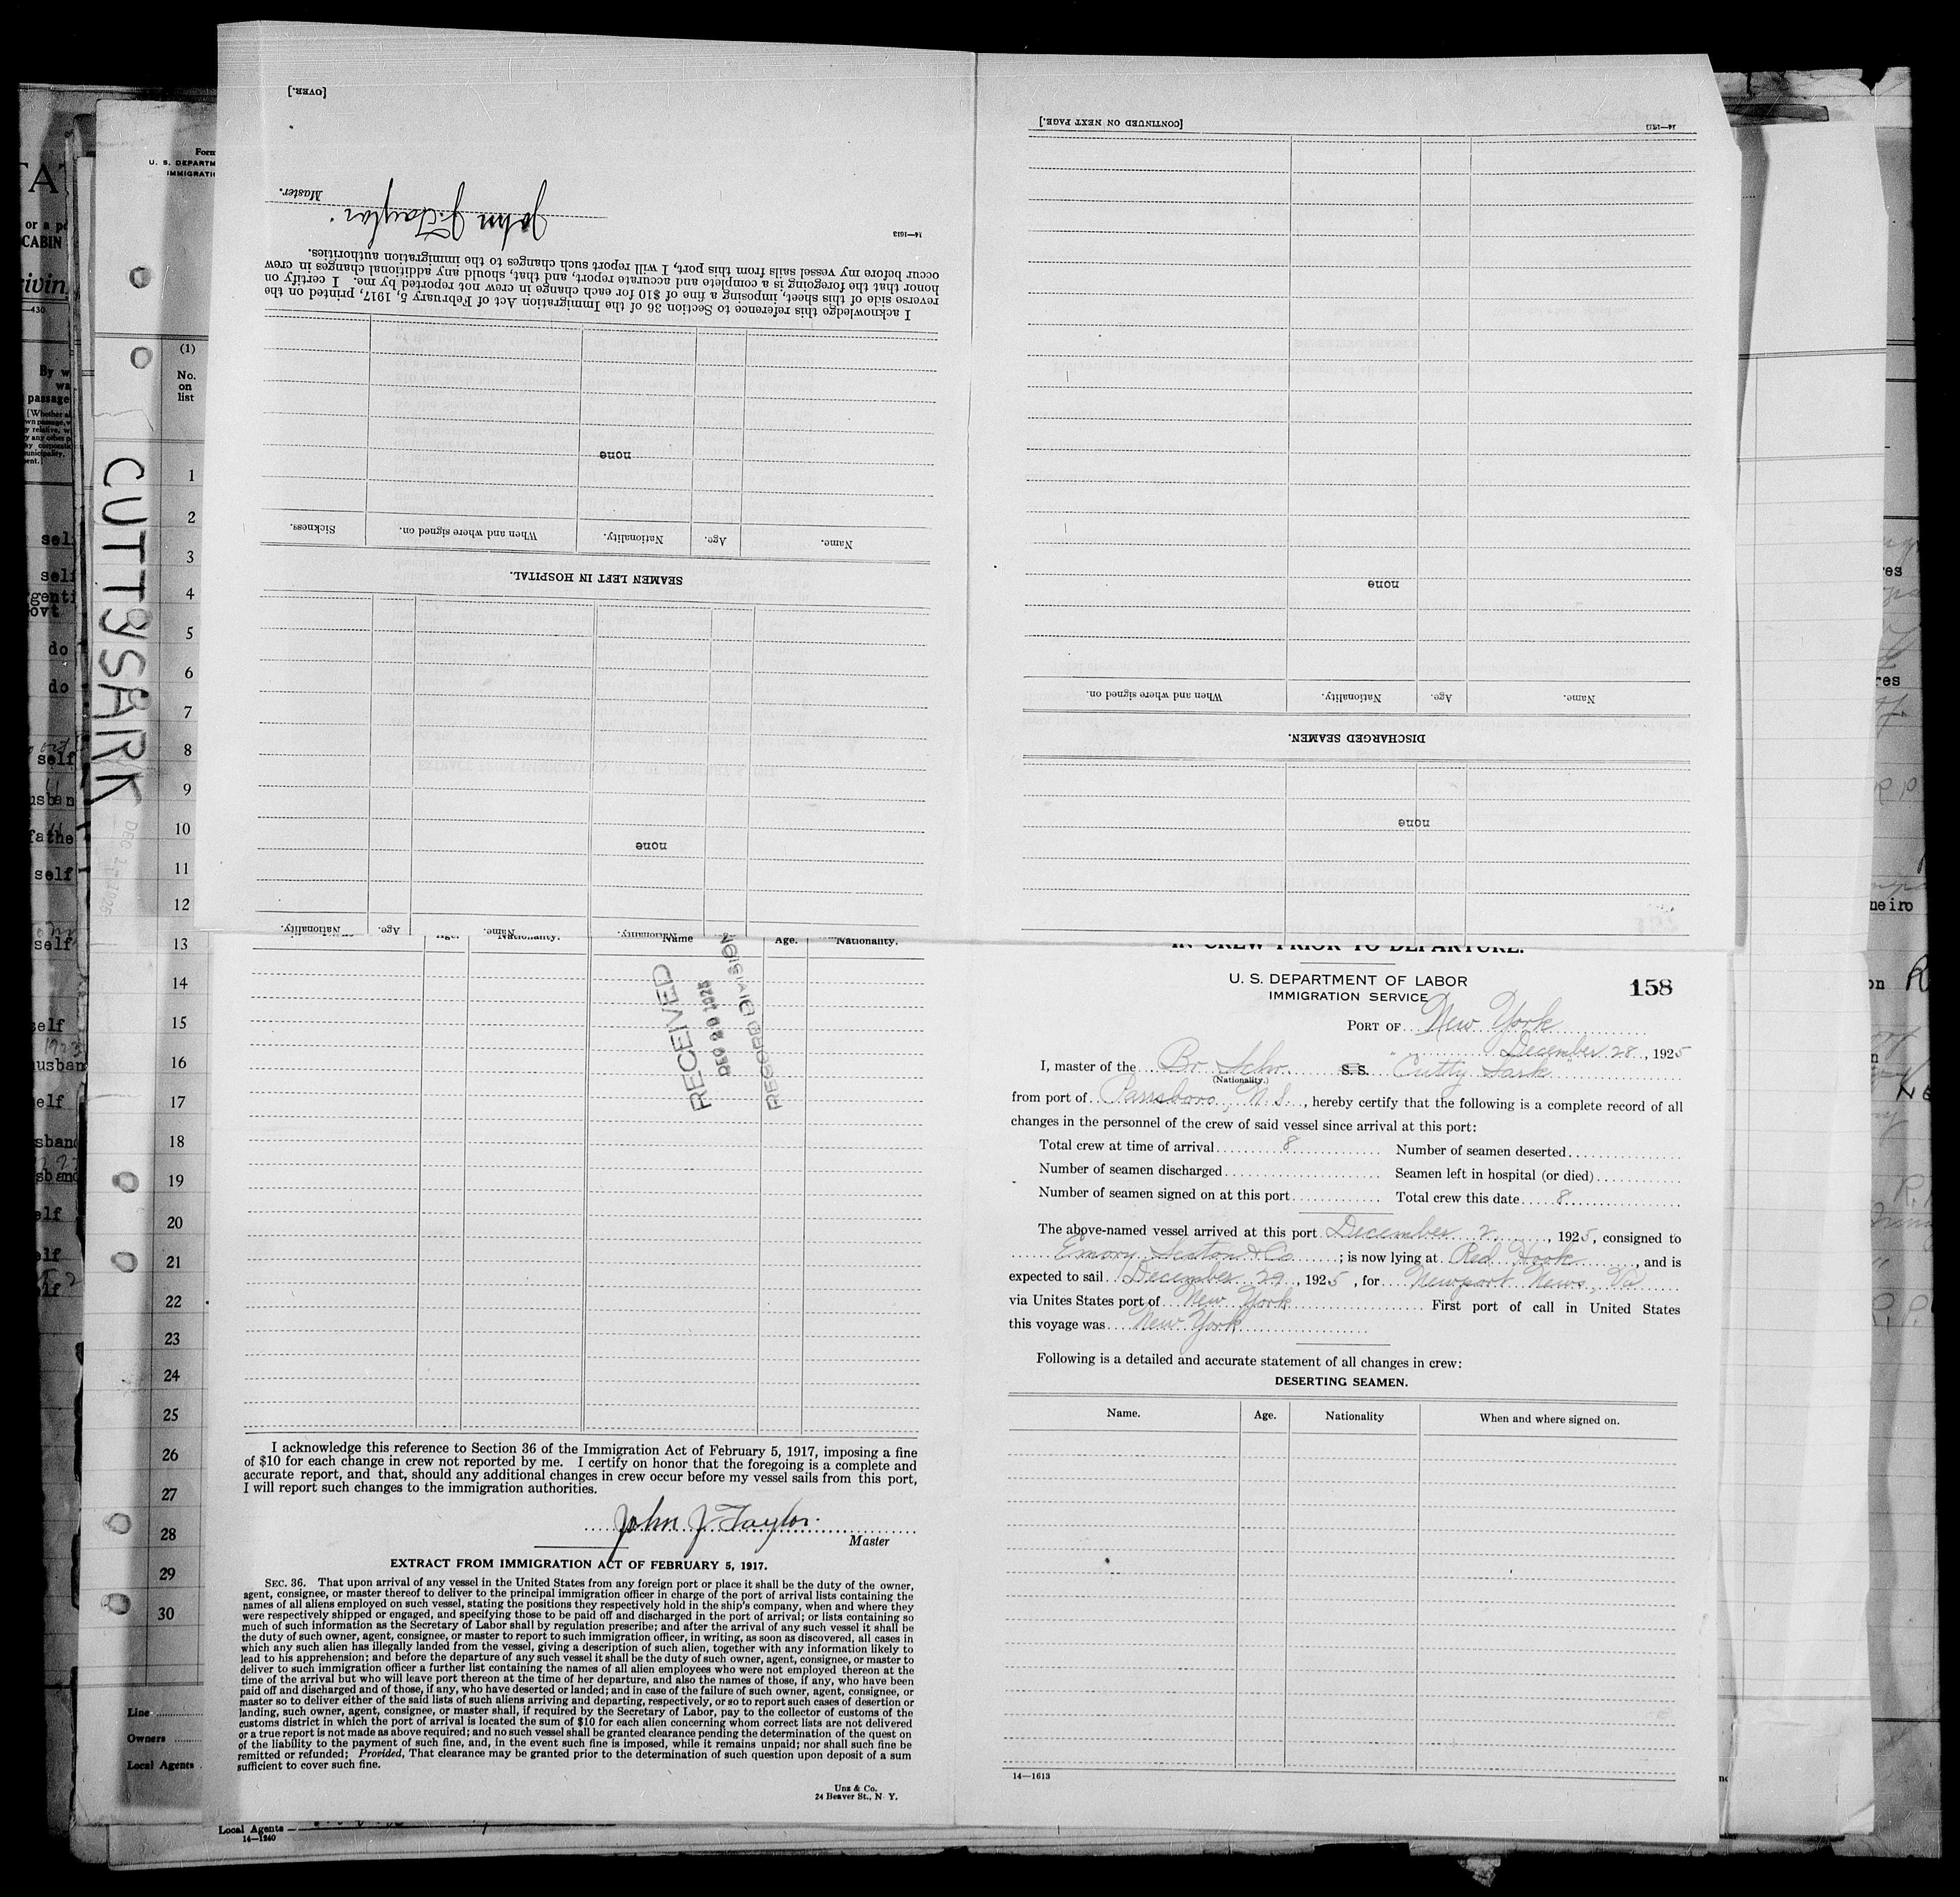 [OVER.]
John J. Taylor
Master.
14—1613
I acknowledge this reference to Section 36 of the Immigration Act of February 5, 1917, printed on the
reverse side of this sheet, imposing a fine of $10 for each change in crew not reported by me. I certify on
honor that the foregoing is a complete and accurate report, and that, should any additional changes in crew
occur before my vessel sails from this port, I will report such changes to the immigration authorities.
none
Name. Age. Nationality. When and where signed on. Sickness.
SEAMEN LEFT IN HOSPITAL.
none
Name. Age. Nationality. Nationality.
[CONTINUED ON NEXT PAGE.]
14—1613
none
Name. Age. Nationality. When and where signed on.
DISCHARGED SEAMEN.
none
Form
U. S. DEPARTM
IMMIGRATI
(1)
No.
on
list
CUTTYSARK
1
2
3
4
5
6
7
8
9
10
11
12
13
14
15
16
17
18
19
20
21
22
23
24
25
26
27
28
29
30
Line
Owners
Local Agents
Local Agents
14—1240
Age. Nationality. Name Age. Nationality.
RECEIVED
RECORD DIVISION
I acknowledge this reference to Section 36 of the Immigration Act of February 5, 1917, imposing a fine
of $10 for each change in crew not reported by me. I certify on honor that the foregoing is a complete and
accurate report, and that, should any additional changes in crew occur before my vessel sails from this port,
I will report such changes to the immigration authorities.
John J Taylor.
Master
EXTRACT FROM IMMIGRATION ACT OF FEBRUARY 5, 1917.
SEC. 36. That upon arrival of any vessel in the United States from any foreign port or place it shall be the duty of the owner,
agent, consignee, or master thereof to deliver to the principal immigration officer in charge of the port of arrival lists containing the
names of all aliens employed on such vessel, stating the positions they respectively hold in the ship's company, when and where they
were respectively shipped or engaged, and specifying those to be paid off and discharged in the port of arrival; or lists containing so
much of such information as the Secretary of Labor shall by regulation prescribe; and after the arrival of any such vessel it shall be
the duty of such owner, agent, consignee, or master to report to such immigration officer, in writing, as soon as discovered, all cases in
which any such alien has illegally landed from the vessel, giving a description of such alien, together with any information likely to
lead to his apprehension; and before the departure of any such vessel it shall be the duty of such owner, agent, consignee, or master to
deliver to such immigration officer a further list containing the names of all alien employees who were not employed thereon at the
time of the arrival but who will leave port thereon at the time of her departure, and also the names of those, if any, who have been
paid off and discharged and of those, if any, who have deserted or landed; and in case of the failure of such owner, agent, consignee, or
master so to deliver either of the said lists of such aliens arriving and departing, respectively, or so to report such cases of desertion or
landing, such owner, agent, consignee, or master shall, if required by the Secretary of Labor, pay to the collector of customs of the
customs district in which the port of arrival is located the sum of $10 for each alien concerning whom correct lists are not delivered
or a true report is not made as above required; and no such vessel shall be granted clearance pending the determination of the quest on
of the liability to the payment of such fine, and, in the event such fine is imposed, while it remains unpaid; nor shall such fine be
remitted or refunded; Provided, That clearance may be granted prior to the determination of such question upon deposit of a sum
sufficient to cover such fine.
Unz & Co.
24 Beaver St., N. Y.
IN CREW PRIOR TO DEPARTURE.
U. S. DEPARTMENT OF LABOR
IMMIGRATION SERVICE
158
PORT OF New York
December 28, 1925
I, master of the Br Schr. S. S. "Cutty Sark"
(Nationality.)
from port of Parrsboro, N. S., hereby certify that the following is a complete record of all
changes in the personnel of the crew of said vessel since arrival at this port:
Total crew at time of arrival 8 Number of seamen deserted
Number of seamen discharged Seamen left in hospital (or died)
Number of seamen signed on at this port Total crew this date 8
The above-named vessel arrived at this port December 2, 1925, consigned to
Emory Sexton & Co; is now lying at Red Hook, and is
expected to sail December 29, 1925, for Newport News, Va
via Unites States port of New York First port of call in United States
this voyage was New York
Following is a detailed and accurate statement of all changes in crew:
DESERTING SEAMEN.
Name. Age. Nationality When and where signed on.
14—1613